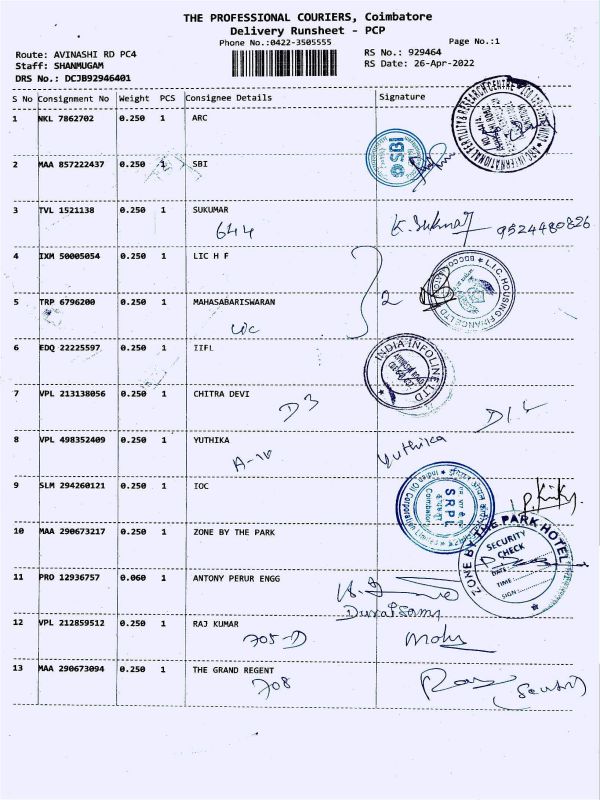 THE PROFESSIONAL COURIERS, Coimbatore
Delivery Runsheet - PCP
Phone No.:0422-3505555
Page No.:1
Route: AVINASHI RD PC4
RS No.: 929464
Staff: SHANMUGAM
RS Date: 26-Apr-2022
DRS No.: DCJB92946401
S No Consignment No Weight PCS Consignee Details Signature
1 NKL 7862702 0.250 1 ARC
2 MAA 857222437 0.250 1 SBI
SBI
3 TVL 1521138 0.250 1 SUKUMAR
644 K. Sukumar 9524480826
4 IXM 50005054 0.250 1 LIC H F
L.I.C. HOUSING FINANCE LTD
5 TRP 6796200 0.250 1 MAHASABARISWARAN
2
6 EDQ 22225597 0.250 1 IIFL
INDIA INFOLINE LTD
7 VPL 213138056 0.250 1 CHITRA DEVI
D3
8 VPL 498352409 0.250 1 YUTHIKA
A-10 Yuthika
9 SLM 294260121 0.250 1 IOC
SRPL
Coimbatore
10 MAA 290673217 0.250 1 ZONE BY THE PARK
ZONE BY THE PARK HOTEL
SECURITY
CHECK
DATE:
TIME:
SIGN:
11 PRO 12936757 0.060 1 ANTONY PERUR ENGG
Duraisamy
12 VPL 212859512 0.250 1 RAJ KUMAR
705-D
13 MAA 290673094 0.250 1 THE GRAND REGENT
708